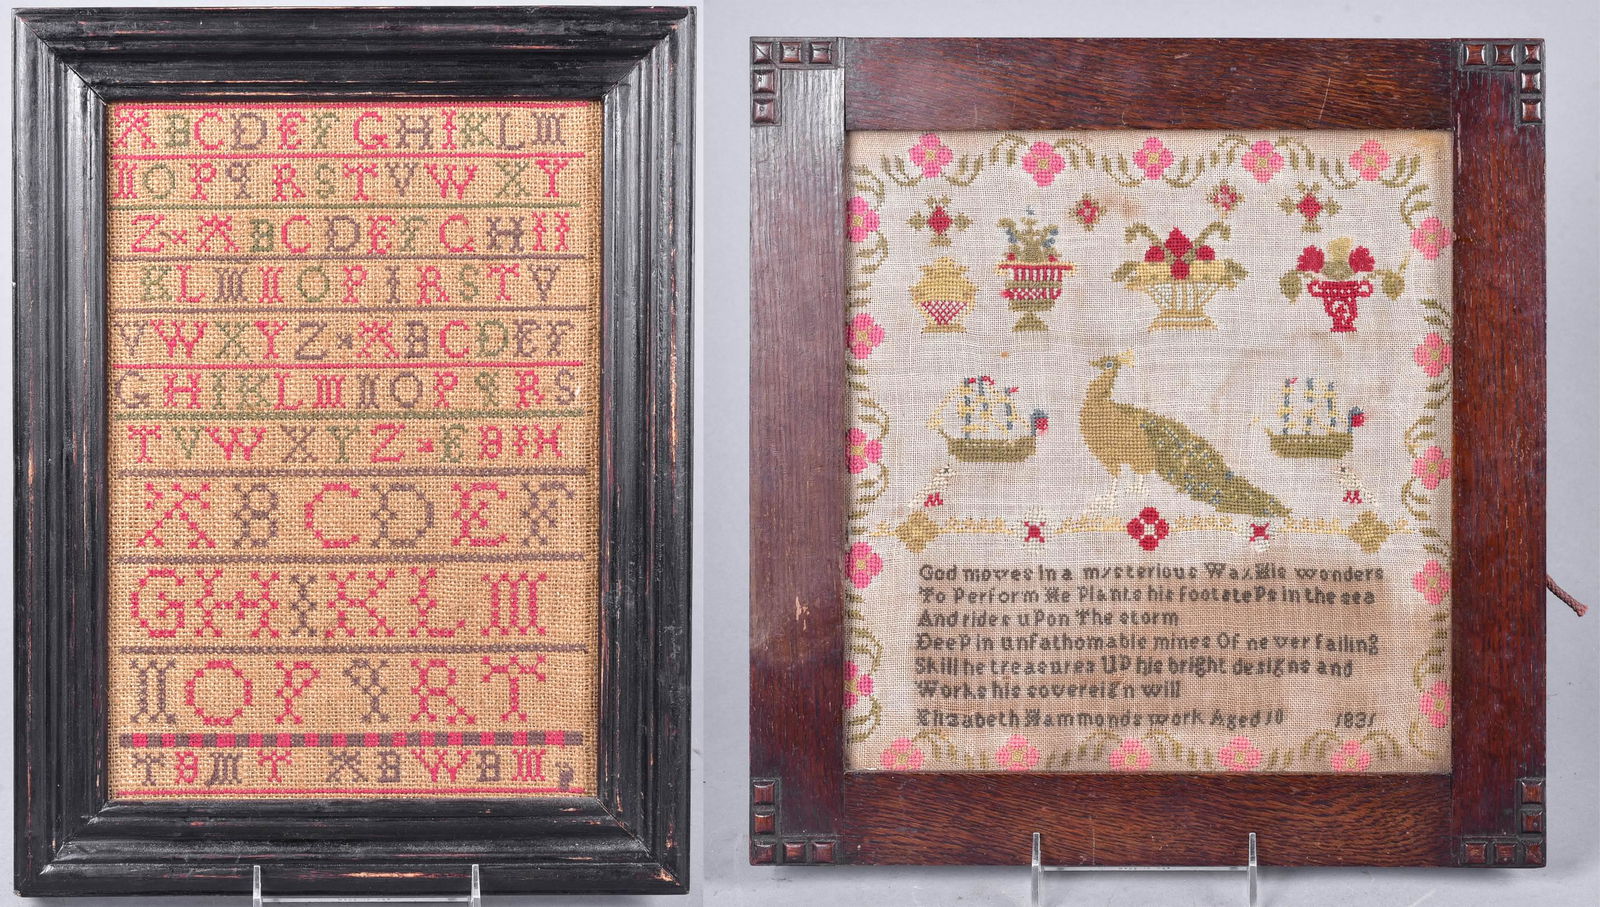 A B C D E F G H I K L M
N O P q R S T V W X Y
Z A B C D E F G H I I
K L M N O P I R S T V
V W X Y Z A B C D E F
G H I K L M N O P q R S
T V W X Y Z E B I H
A B C D E F
G H I K L M
N O P q R T
T B M T A B W B M
God moves in a mysterious Way His wonders
To Perform He Plants his footsteps in the sea
And rides uPon The storm
Deep in unfathomable mines Of never failing
Skill he treasures UP his bright designs and
Works his sovereign will
Elizabeth Hammonds work Aged 10 1831